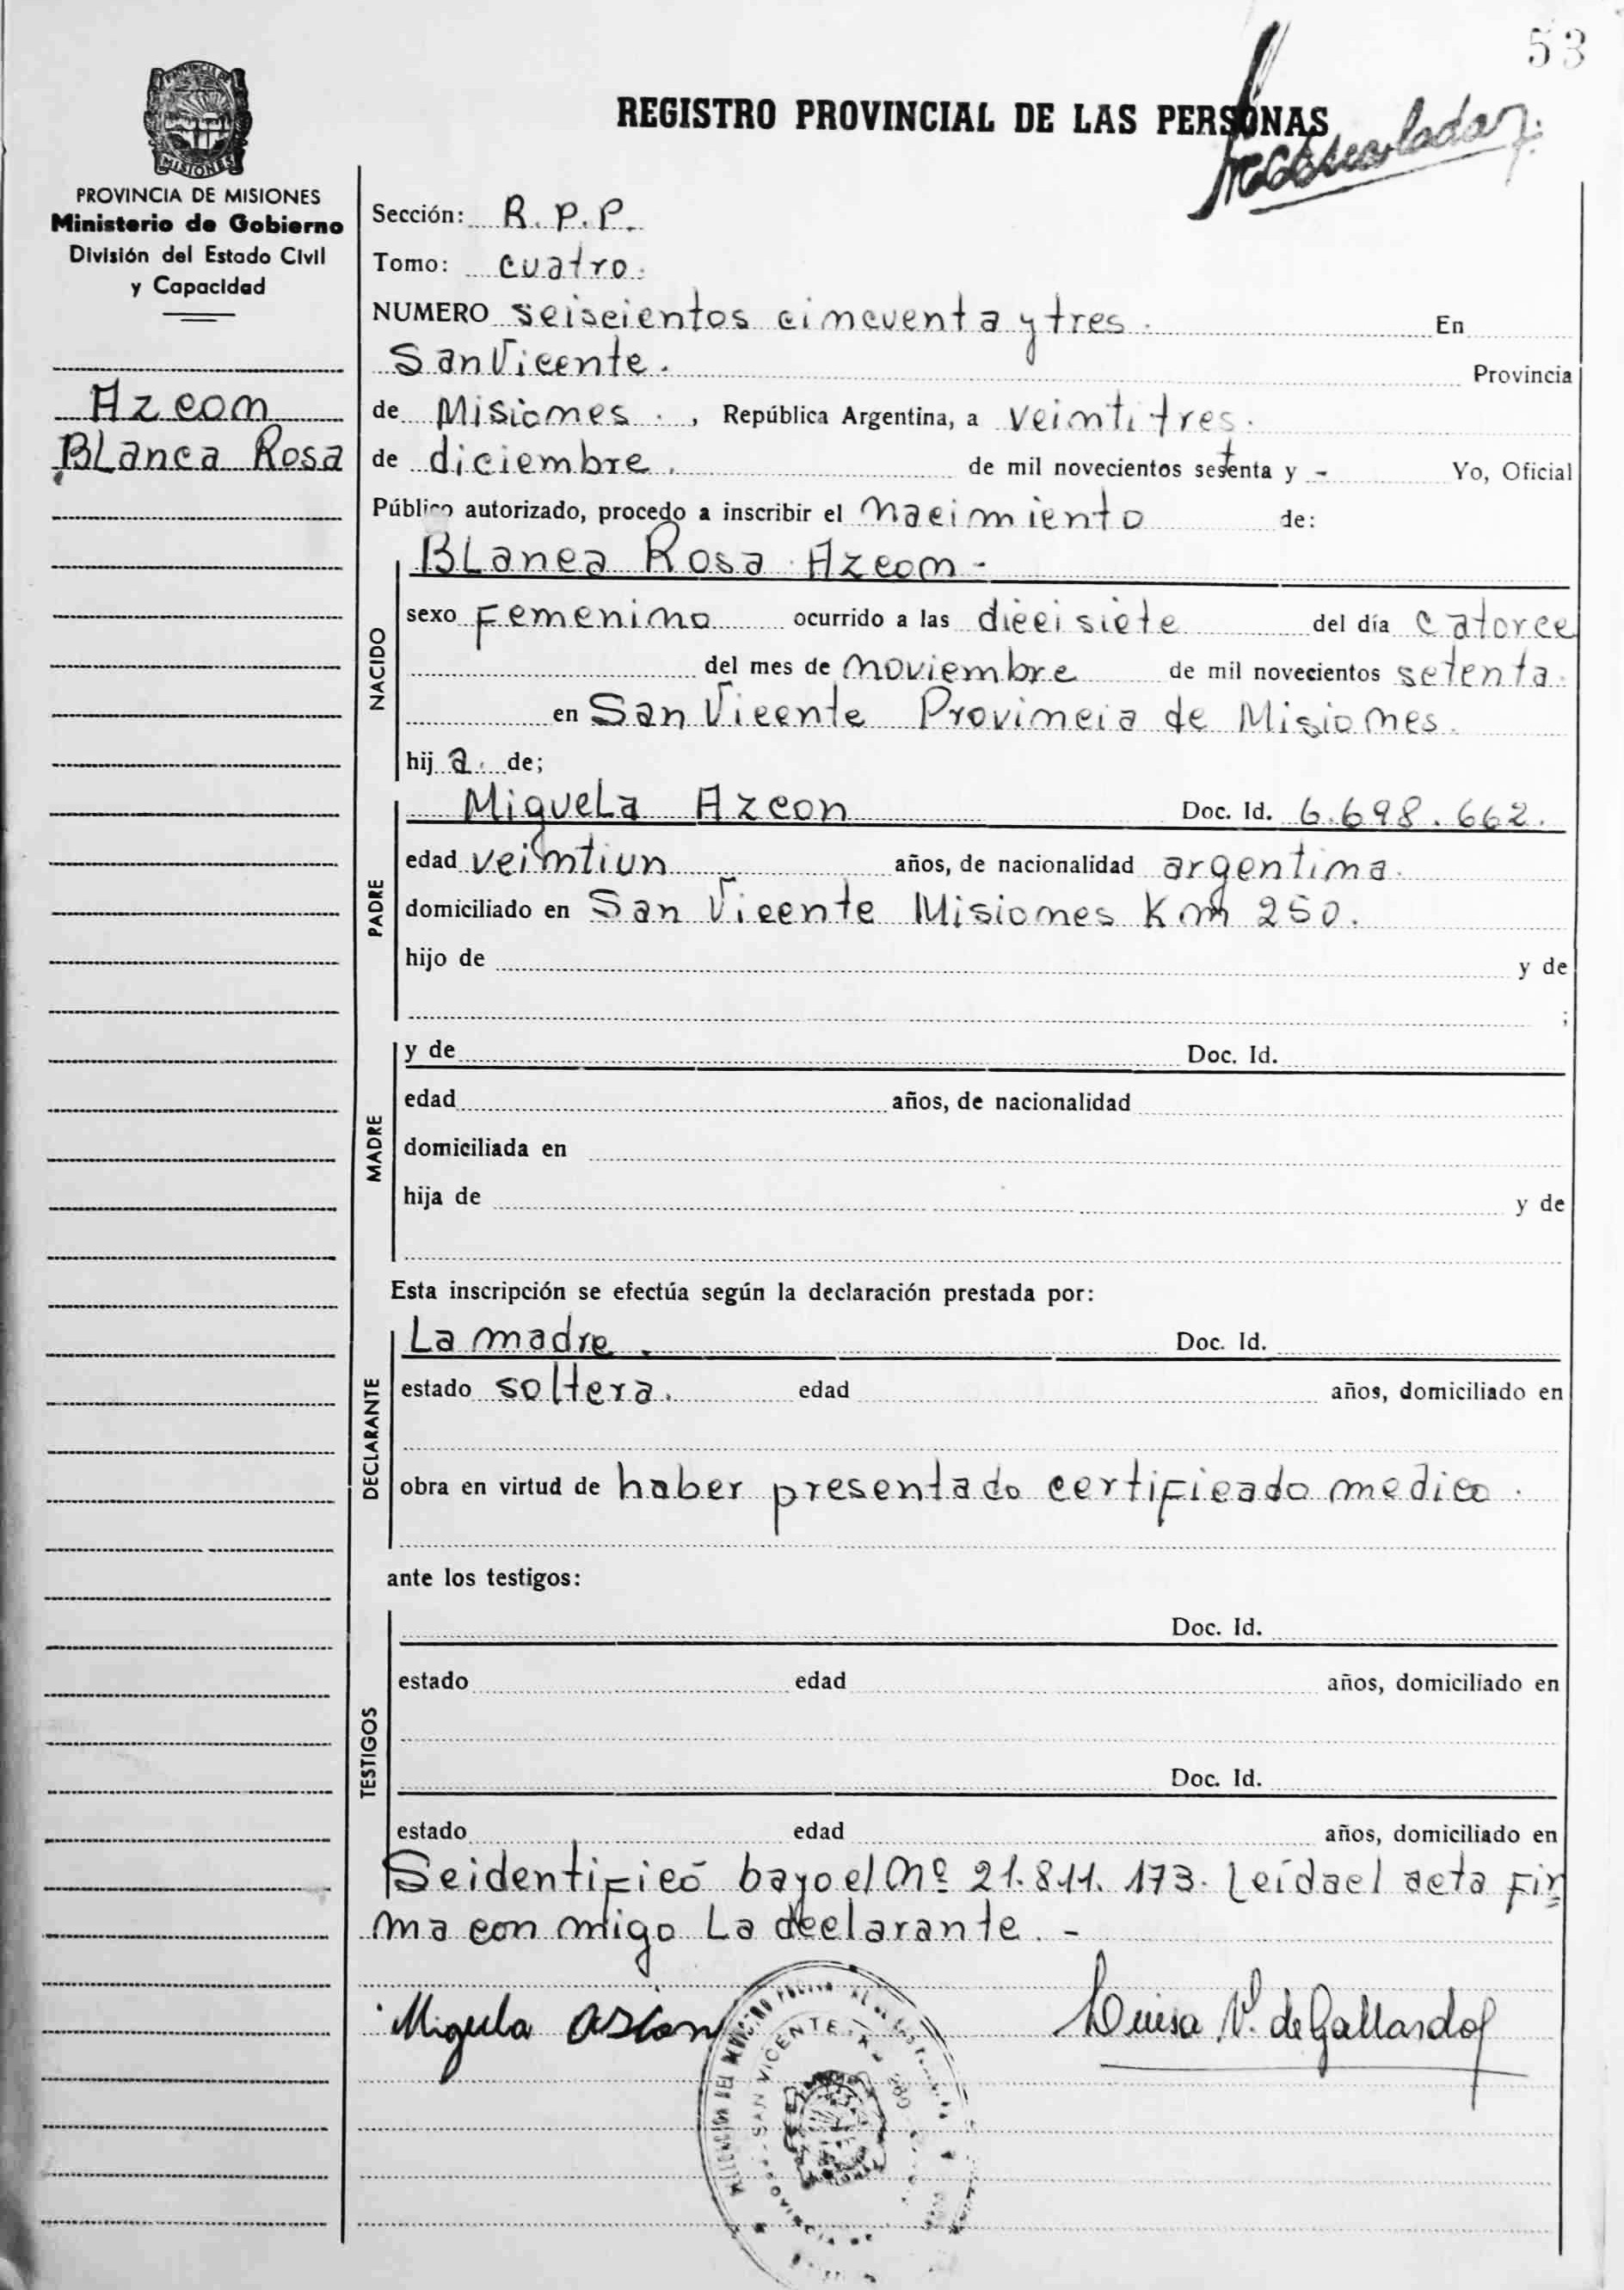 53
REGISTRO PROVINCIAL DE LAS PERSONAS
MISIONES
PROVINCIA DE MISIONES
Ministerio de Gobierno
División del Estado Civil
y Capacidad
Azcon
Blanca Rosa
Sección: R.P.P.
Tomo: cuatro.
NUMERO seiscientos cincuenta y tres. En
San Vicente. Provincia
de Misiones., República Argentina, a veintitres.
de diciembre. de mil novecientos setenta y - Yo, Oficial
Público autorizado, procedo a inscribir el nacimiento de:
Blanca Rosa Azcon-
NACIDO
sexo Femenino ocurrido a las diecisiete del día catorce
del mes de noviembre de mil novecientos setenta.
en San Vicente Provincia de Misiones.
hija. de;
PADRE
Miguela Azcon Doc. Id. 6.698.662.
edad veintiun años, de nacionalidad argentina.
domiciliado en San Vicente Misiones Km 250.
hijo de y de
;
MADRE
y de Doc. Id.
edad años, de nacionalidad
domiciliada en
hija de y de
Esta inscripción se efectúa según la declaración prestada por:
DECLARANTE
La madre. Doc. Id.
estado soltera. edad años, domiciliado en
obra en virtud de haber presentado certificado medico.
ante los testigos:
TESTIGOS
Doc. Id.
estado edad años, domiciliado en
Doc. Id.
estado edad años, domiciliado en
Se identificó bayo el Nº 21.811.173. Leída el acta fir
ma con migo La declarante.-
Miguela Luisa V. de Gallardo
SAN VICENTE